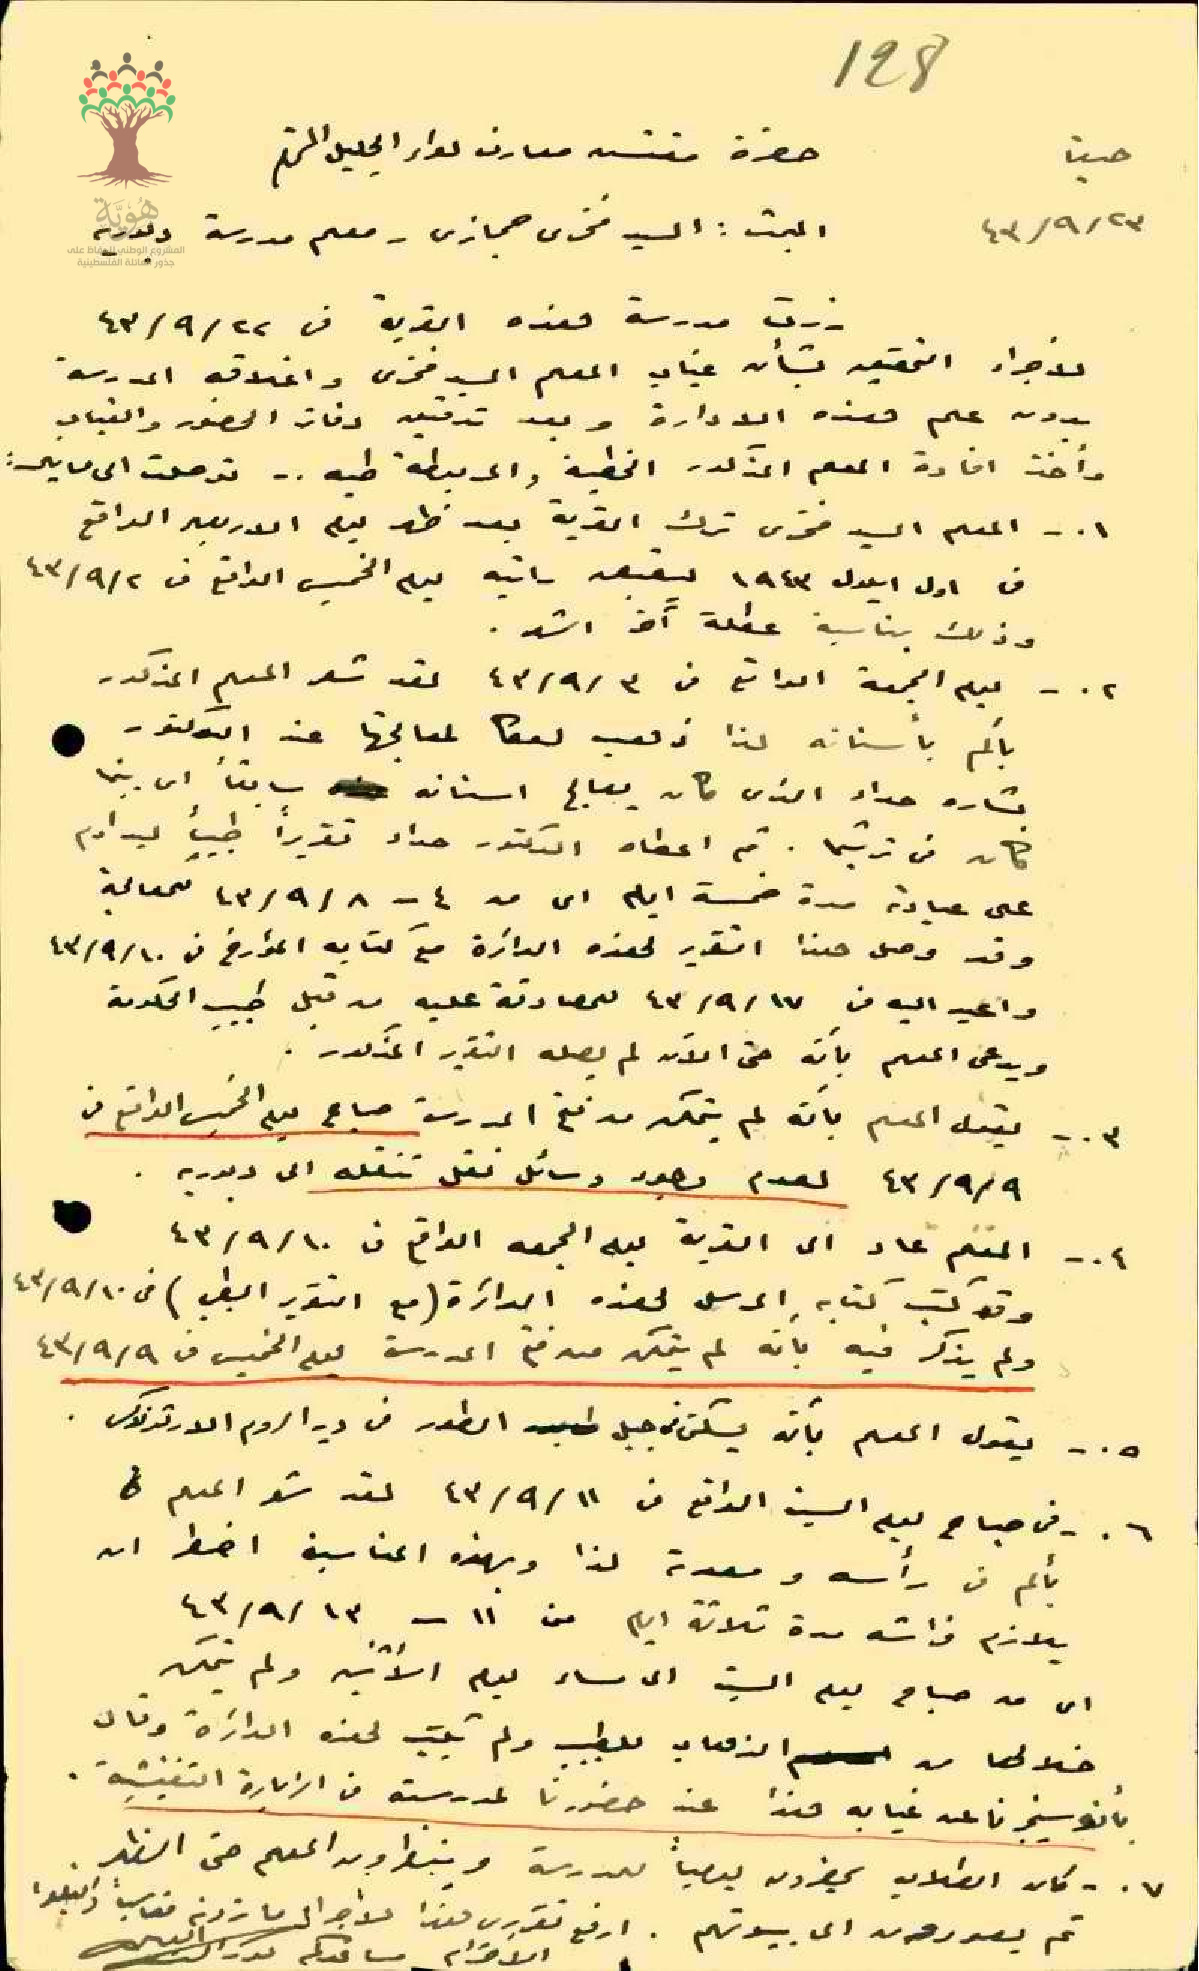 128
حيفا
حضرة مفتش معارف لواء الجليل المحترم
٤٣/٩/٢٣
البحث : السيد فخري حجازي - معلم مدرسة دبورية
هُوِيَّة
المشروع الوطني للحفاظ على
جذور العائلة الفلسطينية
زرت مدرسة هذه القرية في ٤٣/٩/٢٢
لاجراء التحقيق بشأن غياب المعلم السيد فخري واغلاقه المدرسة
بدون علم هذه الادارة وبعد تدقيق دفاتر الحضور والغياب
وأخذ افادة المعلم المذكور الخطية والمربوطة طيه .. توصلت الى ما يلي :
٠١ - المعلم السيد فخري ترك القرية بعد ظهر يوم الاربعاء الواقع
في اول ايلول ١٩٤٣ ليقبض راتبه يوم الخميس الواقع في ٤٣/٩/٢
وذلك بمناسبة عطلة آخر الشهر .
٠٢ - يوم الجمعة الواقع في ٤٣/٩/٣ لقد شعر المعلم المذكور
بألم بأسنانه لذا ذهب لعكا لمعالجتها عند الدكتور
بشاره حداد الذي كان يعالج اسنانه سابقاً اي بينما
كان في ترشيحا . ثم اعطاه الدكتور حداد تقريراً طبياً ليداوم
على عيادته مدة خمسة ايام اي من ٤ - ٤٣/٩/٨ للمعالجة
وقد وصل هذا التقرير لهذه الدائرة مع كتابه المؤرخ في ٤٣/٩/١٠
واعيد اليه في ٤٣/٩/١٧ للمصادقة عليه من قبل طبيب الحكومة
ويدعي المعلم بأنه حتى الآن لم يصله التقرير المذكور .
٠٣ - يقول المعلم بأنه لم يتمكن من فتح المدرسة صباح يوم الخميس الواقع في
٤٣/٩/٩ لعدم وجود وسائل نقل تنقله الى دبوريه .
٠٤ - المعلم عاد الى القرية يوم الجمعه الواقع في ٤٣/٩/١٠
وقد كتب كتابه المرسل لهذه الدائرة (مع التقرير الطبي) في ٤٣/٩/١٠
ولم يذكر فيه بأنه لم يتمكن من فتح المدرسة يوم الخميس في ٤٣/٩/٩
٠٥ - يقول المعلم بأنه يسكن في جبل الطور في دير الروم الارثوذكس .
٠٦ - في صباح يوم السبت الواقع في ٤٣/٩/١١ لقد شعر المعلم
بألم في رأسه ومعدته لذا وبهذه المناسبة اضطر ان
يلازم فراشه مدة ثلاثة ايام من ١١ - ٤٣/٩/١٣
اي من صباح يوم السبت الى مساء يوم الاثنين ولم يتمكن
خلالها من الذهاب للطبيب ولم يكتب لهذه الدائرة وقال
بأنه سيخبرنا عن غيابه هذا عند حضورنا لمدرسته في الزيارة التفتيشية .
٠٧ - كان الطلاب يحضرون يومياً للمدرسة وينتظرون المعلم حتى الظهر
ثم يعودون الى بيوتهم . ارفع تقريري هذا لاجراء ما ترونه مناسباً واقبلوا
الاحترام